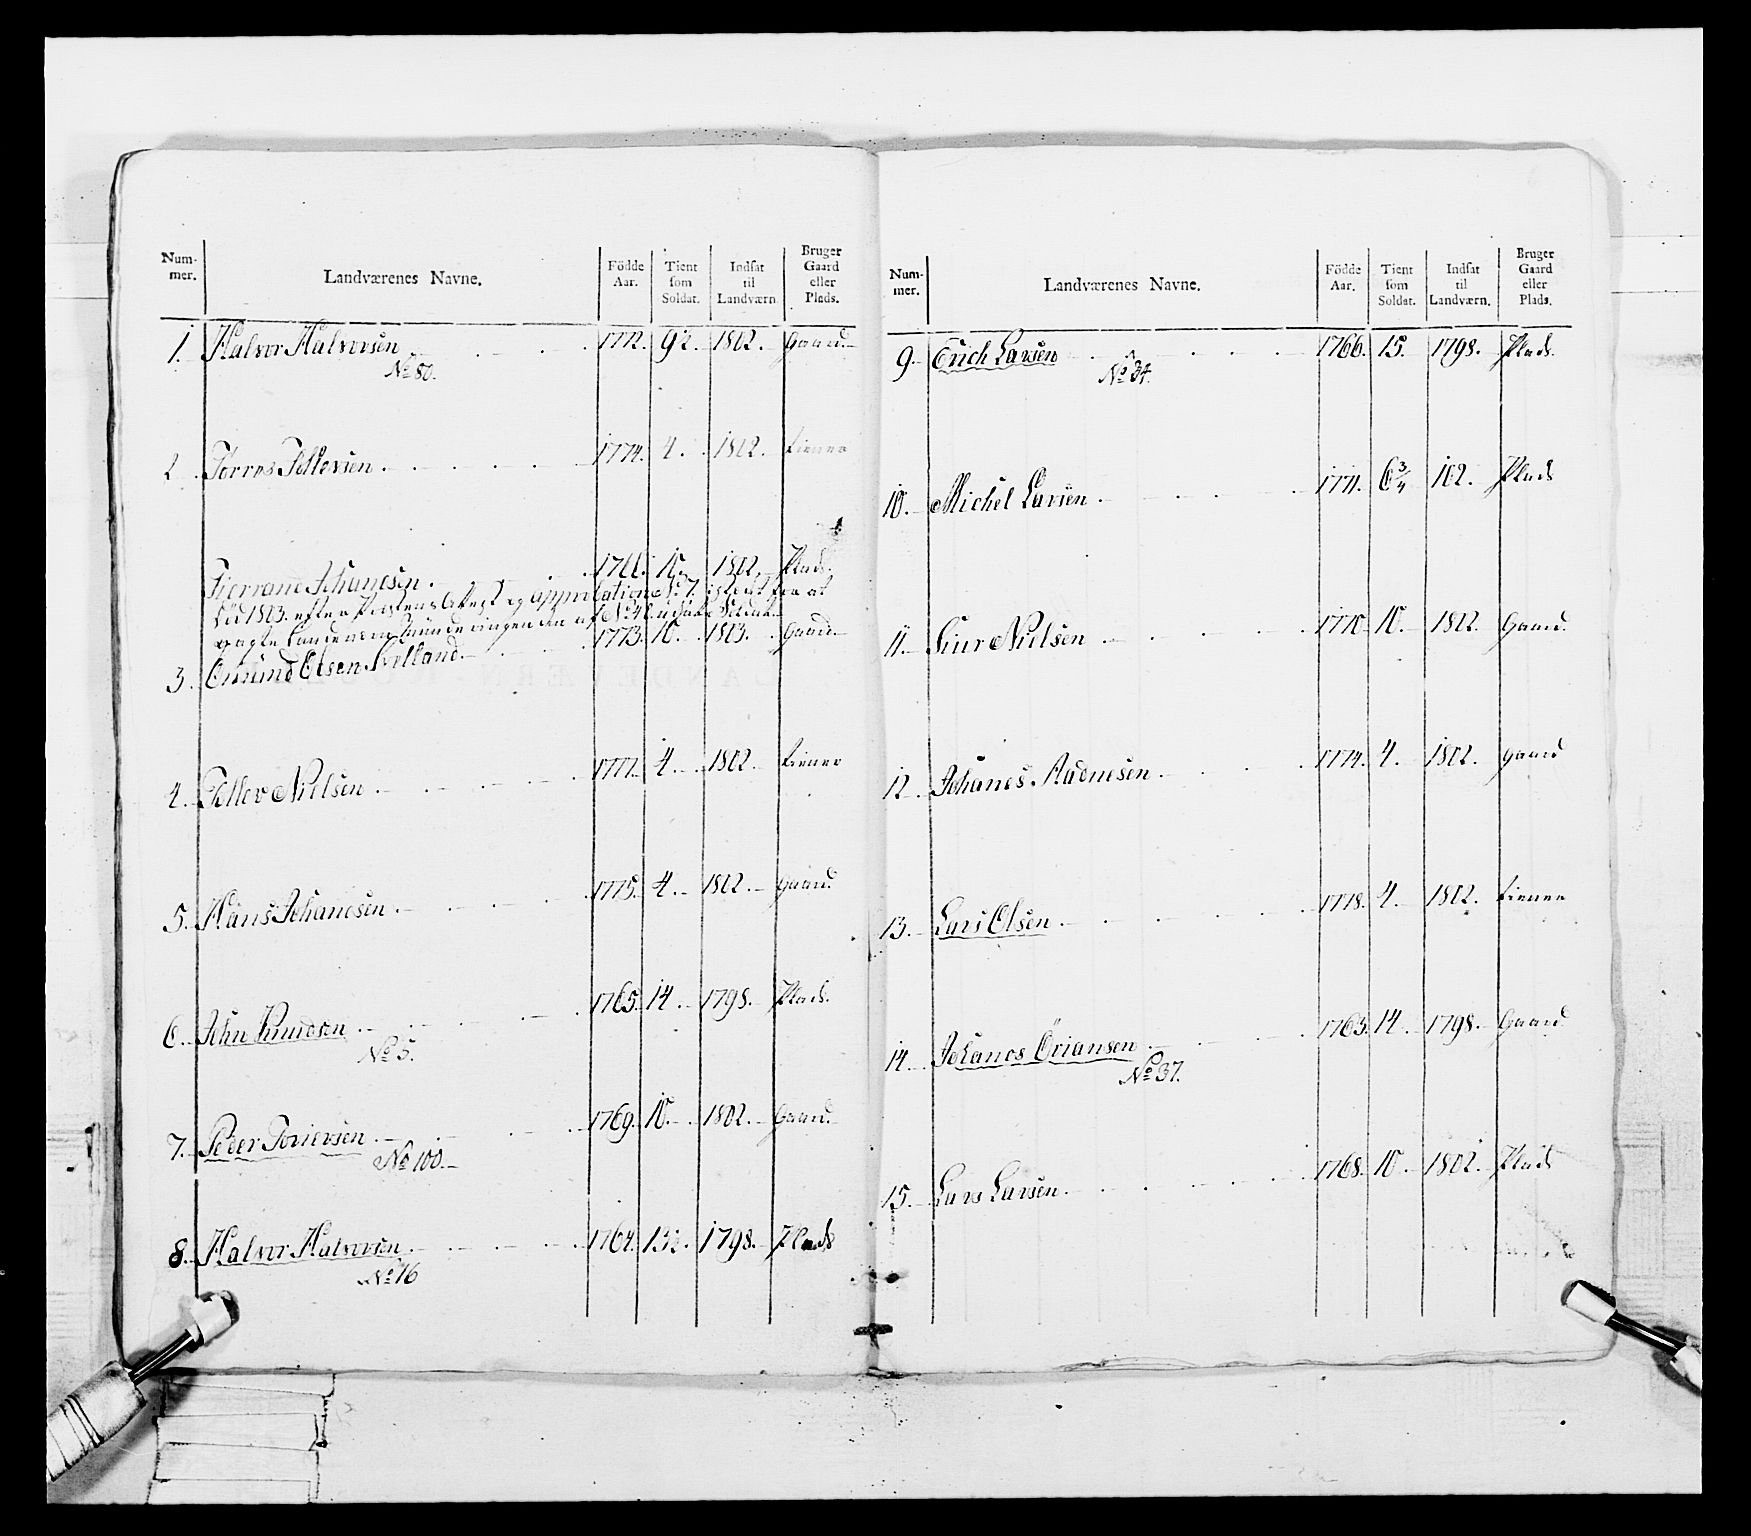 Num-
mer.
Landværenes Navne.
Födde
Aar.
Tient
som
Soldat.
Indsat
til
Landværn.
Bruger
Gaard
eller
Plads.
1. Halvor Halvorsen 1772. 9½. 1802. Gaard.
No 80.
2. Torres Tellevsen 1774. 4. 1802. tiener
Johanesen 1802. Plads.
Död 1803. efter Præstens Attest og approbation No 7.
3. Omund Olsen 1773. 10. 1803. Gaard.
4. Tellev Nielsen 1777. 4. 1802. tiener
5. Hans Johanesen 1775. 4. 1802. Gaard.
6. John Knudsen 1765. 14. 1798. Plads.
No 5.
7. Peder 1769. 10. 1802. Gaard.
No 100.
8. Halvor Halvorsen 1764. 13½. 1798. Plads
No 16
Num-
mer.
Landværenes Navne.
Födde
Aar.
Tient
som
Soldat.
Indsat
til
Landværn.
Bruger
Gaard
eller
Plads.
9. Erich Larsen 1766. 15. 1798. Plads.
No 34.
10. Michel Larsen 1771. 6¾ 102. Plads
11. Nielsen 1770. 10. 1802. Gaard.
12. Johanes Aadnesen 1774. 4. 1802. gaard
13. Lars Olsen 1778. 4. 1802. tiener
14. Johanes Öriansen 1763. 14. 1798. Gaard
No 37.
15. Lars Larsen 1768. 10. 1802. Plads